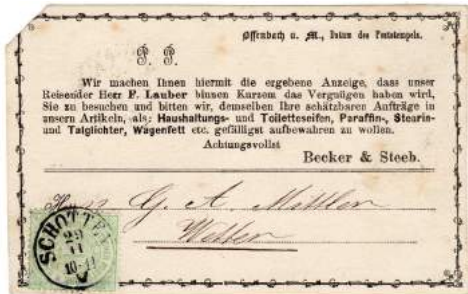 Offenbach a. M., Datum des Poststempels.
P. P.
Wir machen Ihnen hiermit die ergebene Anzeige, dass unser
Reisender Herr F. Lauber binnen Kurzem das Vergnügen haben wird,
Sie zu besuchen und bitten wir, demselben Ihre schätzbaren Aufträge in
unsern Artikeln, als: Haushaltungs- und Toiletteseifen, Paraffin-, Stearin-
und Talglichter, Wagenfett etc. gefälligst aufbewahren zu wollen.
Achtungsvollst
Becker & Steeb.
Herrn G. A. Mittler
Wetter
SCHOTTEN
29
11
10-11